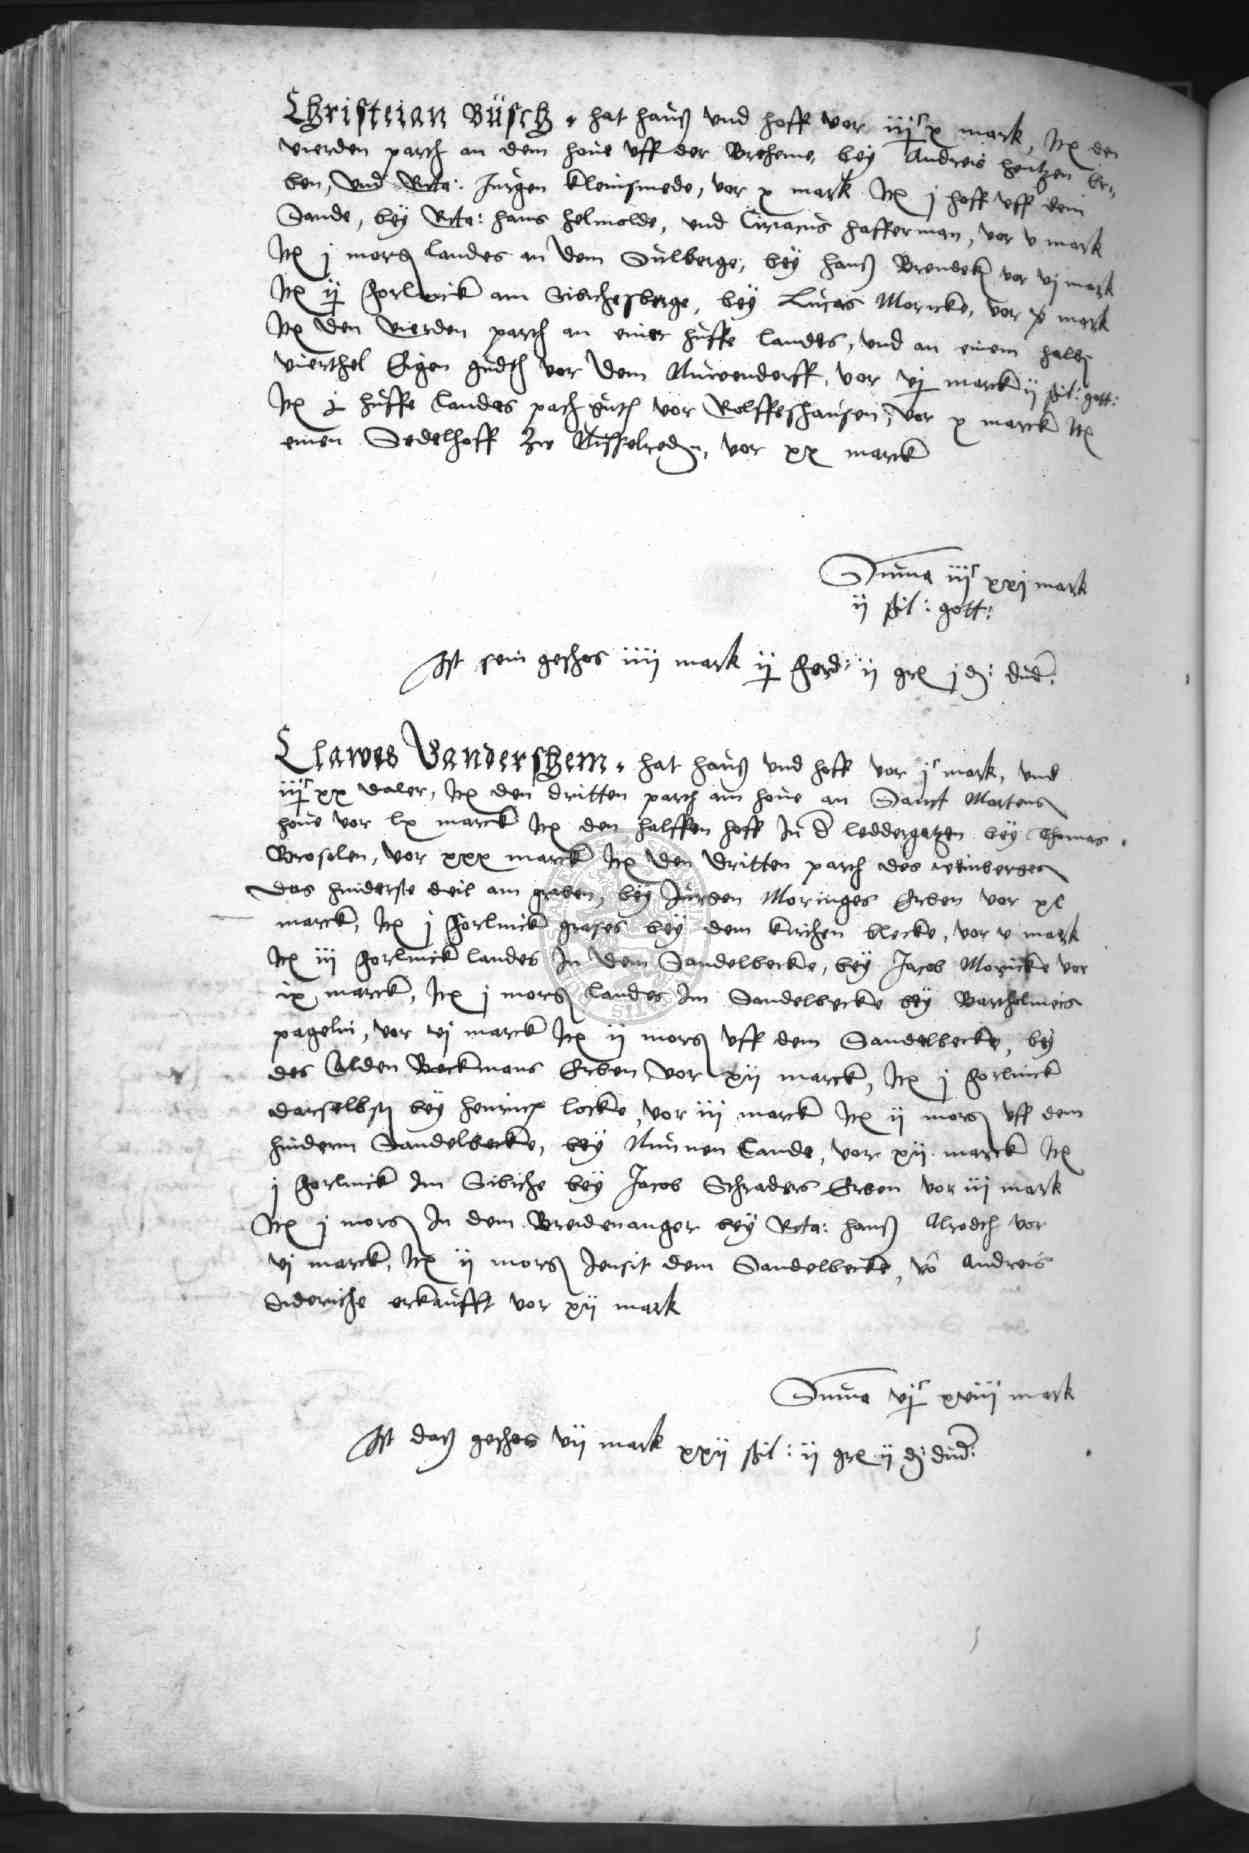 Christeian Büsch . hat hauß vnd hoff vor iijc x mark, Itē den
vierden parth an dem houe vff der Breheme, beÿ Andreis hentzen er=
ben, vnd Rcta: Jurgen kleinsmede, vor x mark Itē j hoff vff dem
Sande, beÿ Rcta: hans helmolde, vnd Ciriacus hafferman, vor v mark
Itē j morg landes an dem Sulberge, beÿ hanß Brendek vor vj mark
Itē ij forlinck am Sibichesberge, beÿ Lucas Moricke, vor x mark
Itē den vierden parth an einer huffe landes, vnd an einem halb
vierthel Eigen gudth vor dem Nuwendorff, vor vj marck ij ßil: gott:
Itē j huffe landes pach guth vor Rolffeshausen, vor x marck Itē
einen Sedelhoff zw Russelred, vor xx marck
Suma iijc xxj mark
ij ßil: gott:
Ist sein geschos iiij mark ij ferd: ij grē j d: dud:
Clawes Vandershem . hat hauß vnd hoff vor jc mark, vnd
iijc xx daler, Itē den dritten parth am houe an Sanct Mertens
houe vor lx marck Itē den halffen hoff In d leddergatzen beÿ Thomas
Brosolen, vor xxx marck Itē den dritten parth des weinberges
das hinderste deil am graben, beÿ Jurgen Moringes Erben vor xl
marck, Itē j forlinck grases beÿ dem kirchen blecke, vor v mark
Itē iij forlinck landes In dem Sandelbecke, beÿ Jacob Moricke vor
ix marck, Itē j morg landes Im Sandelbecke beÿ Bartholmeis
pagelin, vor vj marck Itē ij morg vff dem Sandelbecke, bÿ
des Alden Beckmans Erben, vor xij marck, Itē j forlinck
darselbst beÿ henrich locke, vor iij marck Itē ij morg vff dem
hindern Sandelbecke, beÿ Nunnen Lande, vor xij marck Itē
j forlinck Im Sibiche beÿ Jacob Schraders Erben vor iij mark
Itē j morg In dem Breidenanger beÿ Rcta: hanß Alrodth vor
vj marck, Itē ij morg Jensit dem Sandelbecke, vō Andreis
Dideriche erkaufft vor xij mark
Suma vjc xviij mark
Ist daß geschos vij mark xxij ßil: ij grē ij d: dud: